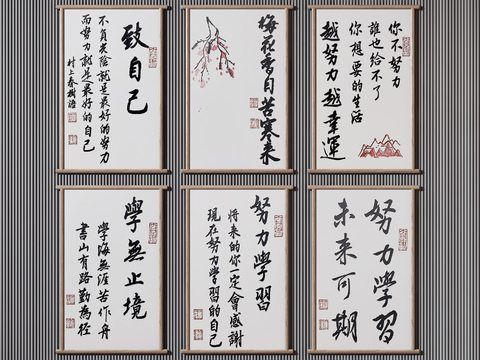 致自己
不負光陰就是最好的努力
而努力就是最好的自己
村上春樹語
梅花香自苦寒來
你不努力
誰也給不了
你想要的生活
越努力越幸運
學無止境
學海無涯苦作舟
書山有路勤為徑
努力學習
將來的你一定會感謝
現在努力學習的自己
努力學習
未來可期